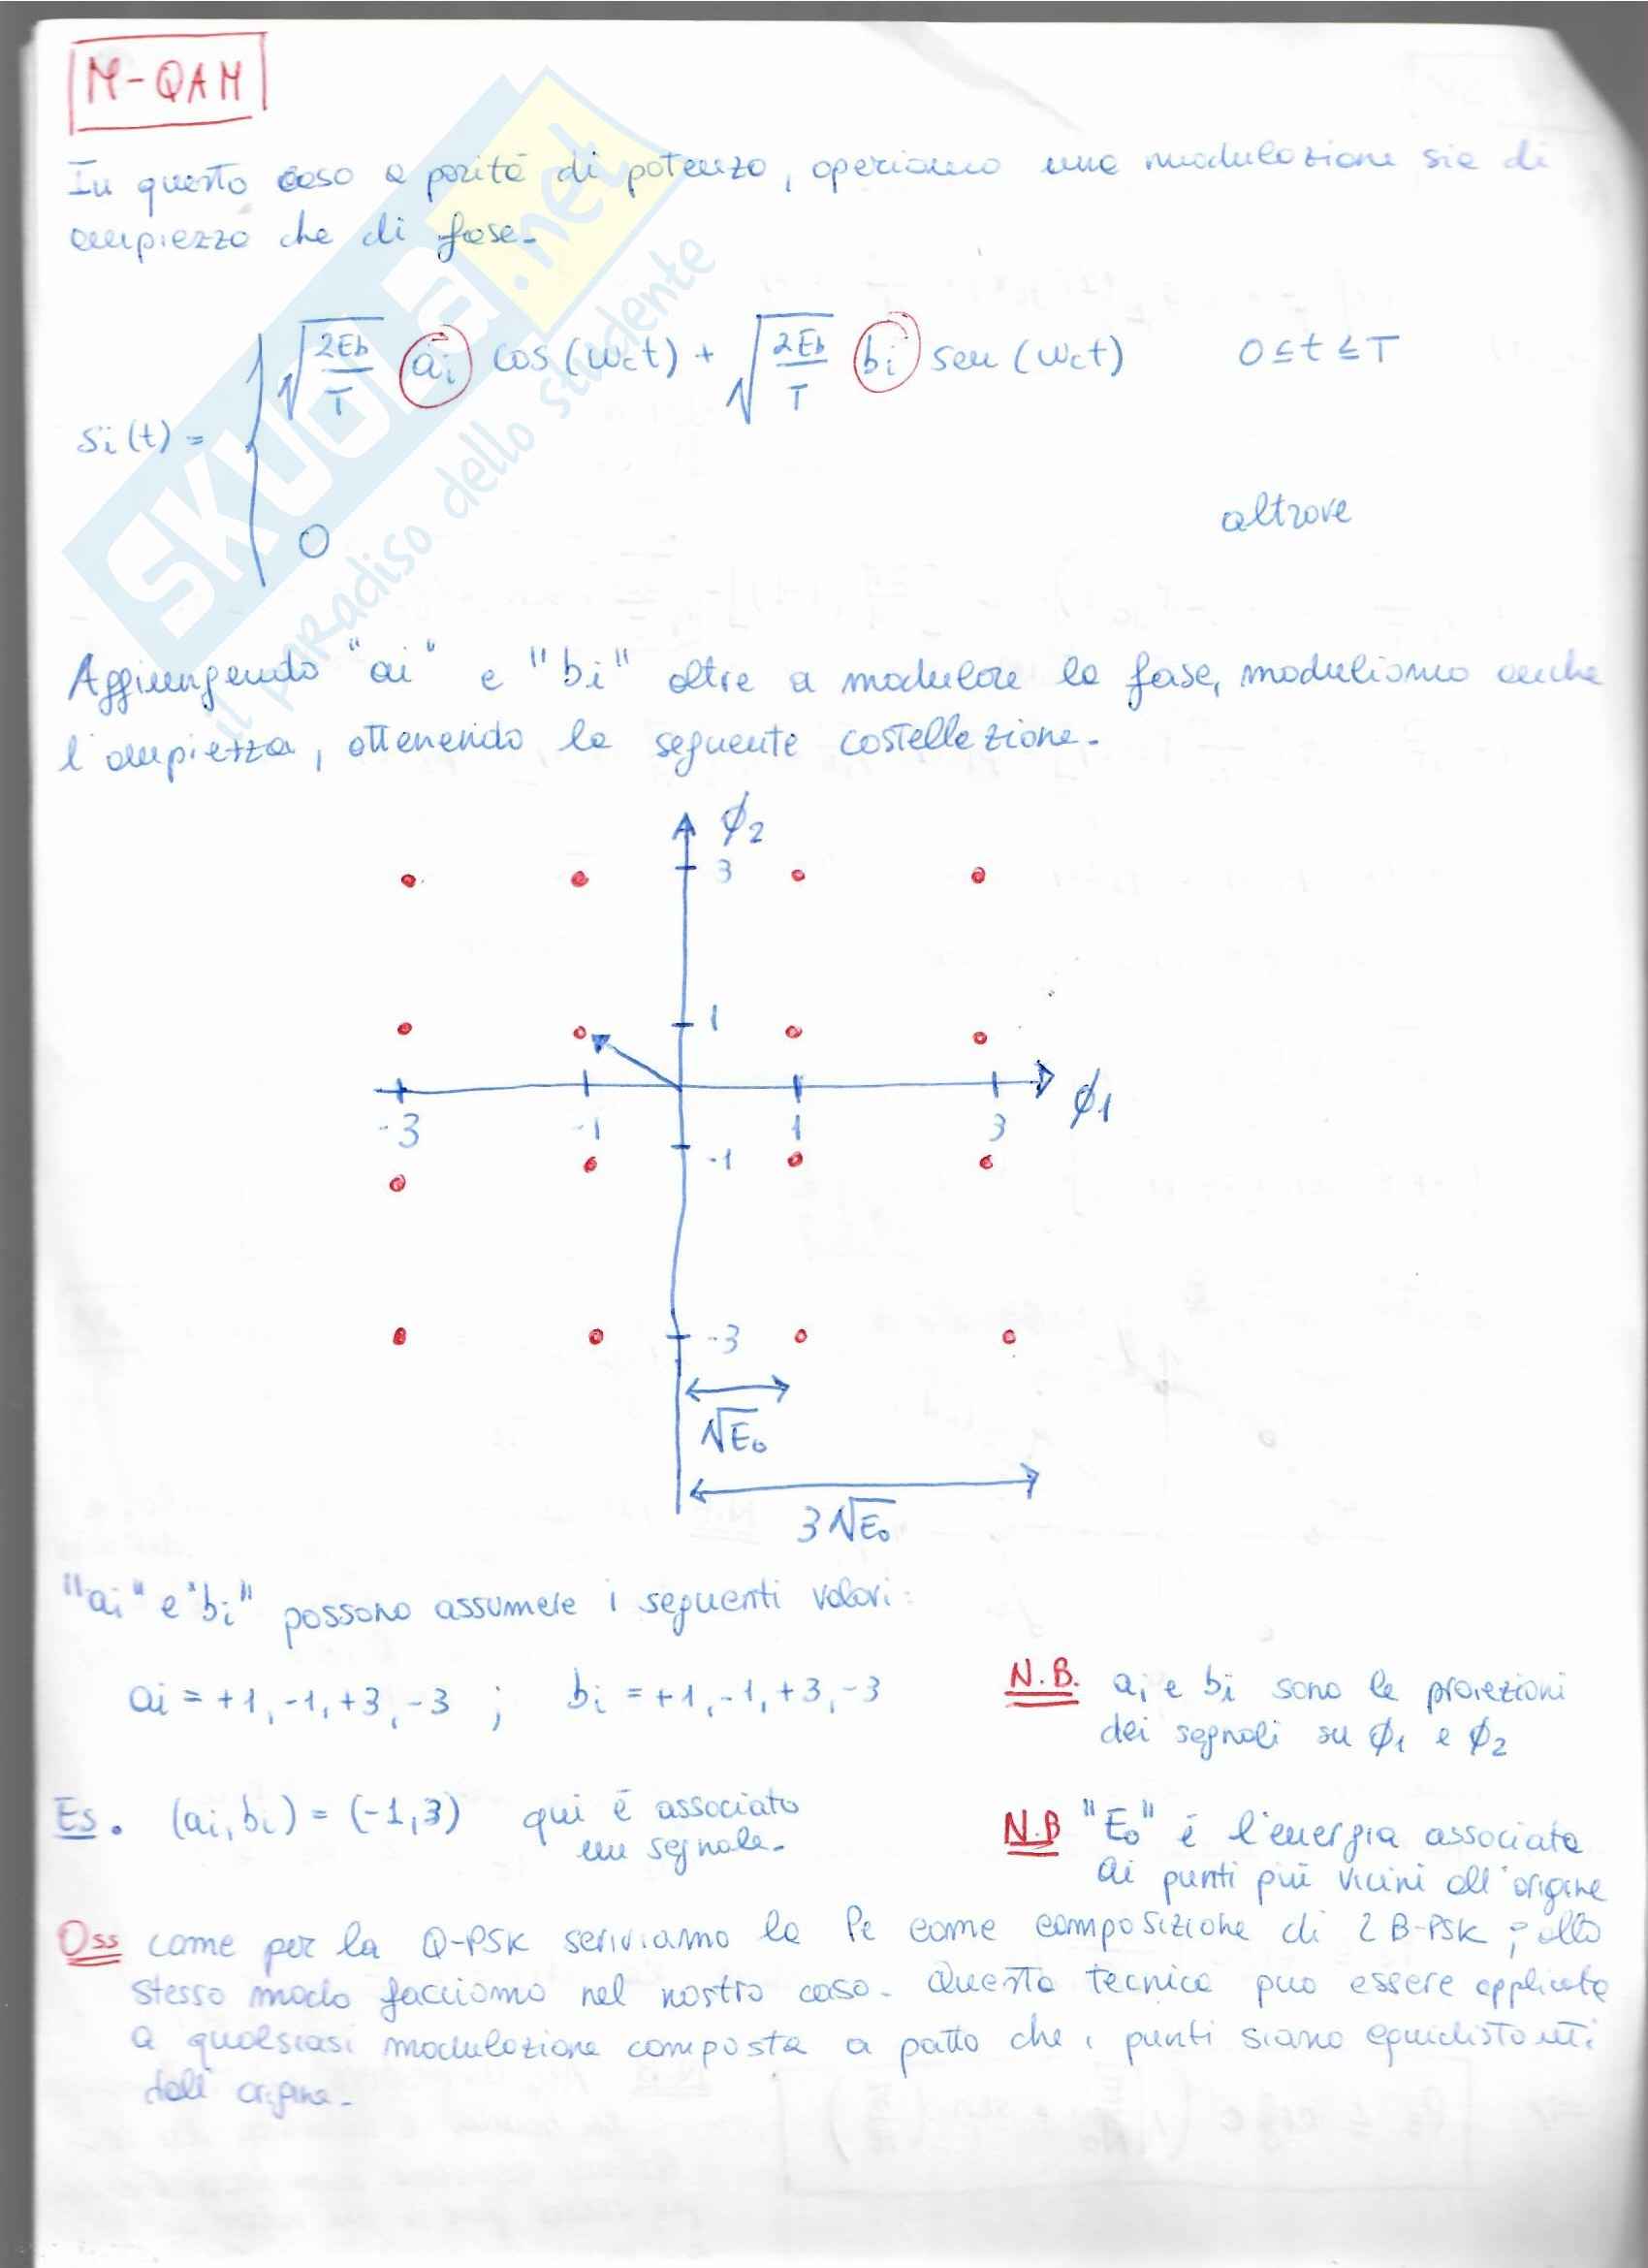 M-QAM
In questo caso a parità di potenza, operiamo una modulazione sia di
ampiezza che di fase.
si(t) = { √(2Eb/T) ai cos(ωct) + √(2Eb/T) bi sen(ωct) 0≤t≤T
0 altrove
Aggiungendo "ai" e "bi" oltre a modulare la fase, moduliamo anche
l'ampiezza, ottenendo la seguente costellazione.
ϕ2
3
1
ϕ1
-3 -1 1 3
-1
-3
√E0
3√E0
"ai" e "bi" possono assumere i seguenti valori:
ai = +1, -1, +3, -3 ; bi = +1, -1, +3, -3
N.B. ai e bi sono le proiezioni
dei segnali su ϕ1 e ϕ2
Es. (ai, bi) = (-1,3) qui è associato
un segnale.
N.B "E0" è l'energia associata
ai punti più vicini all'origine
Oss come per la Q-PSK scriviamo la Pe come composizione di 2 B-PSK; allo
stesso modo facciamo nel nostro caso. Questa tecnica può essere applicata
a qualsiasi modulazione composta a patto che i punti siano equidistanti
dall'origine.
SKUOLa.net
il paradiso dello studente